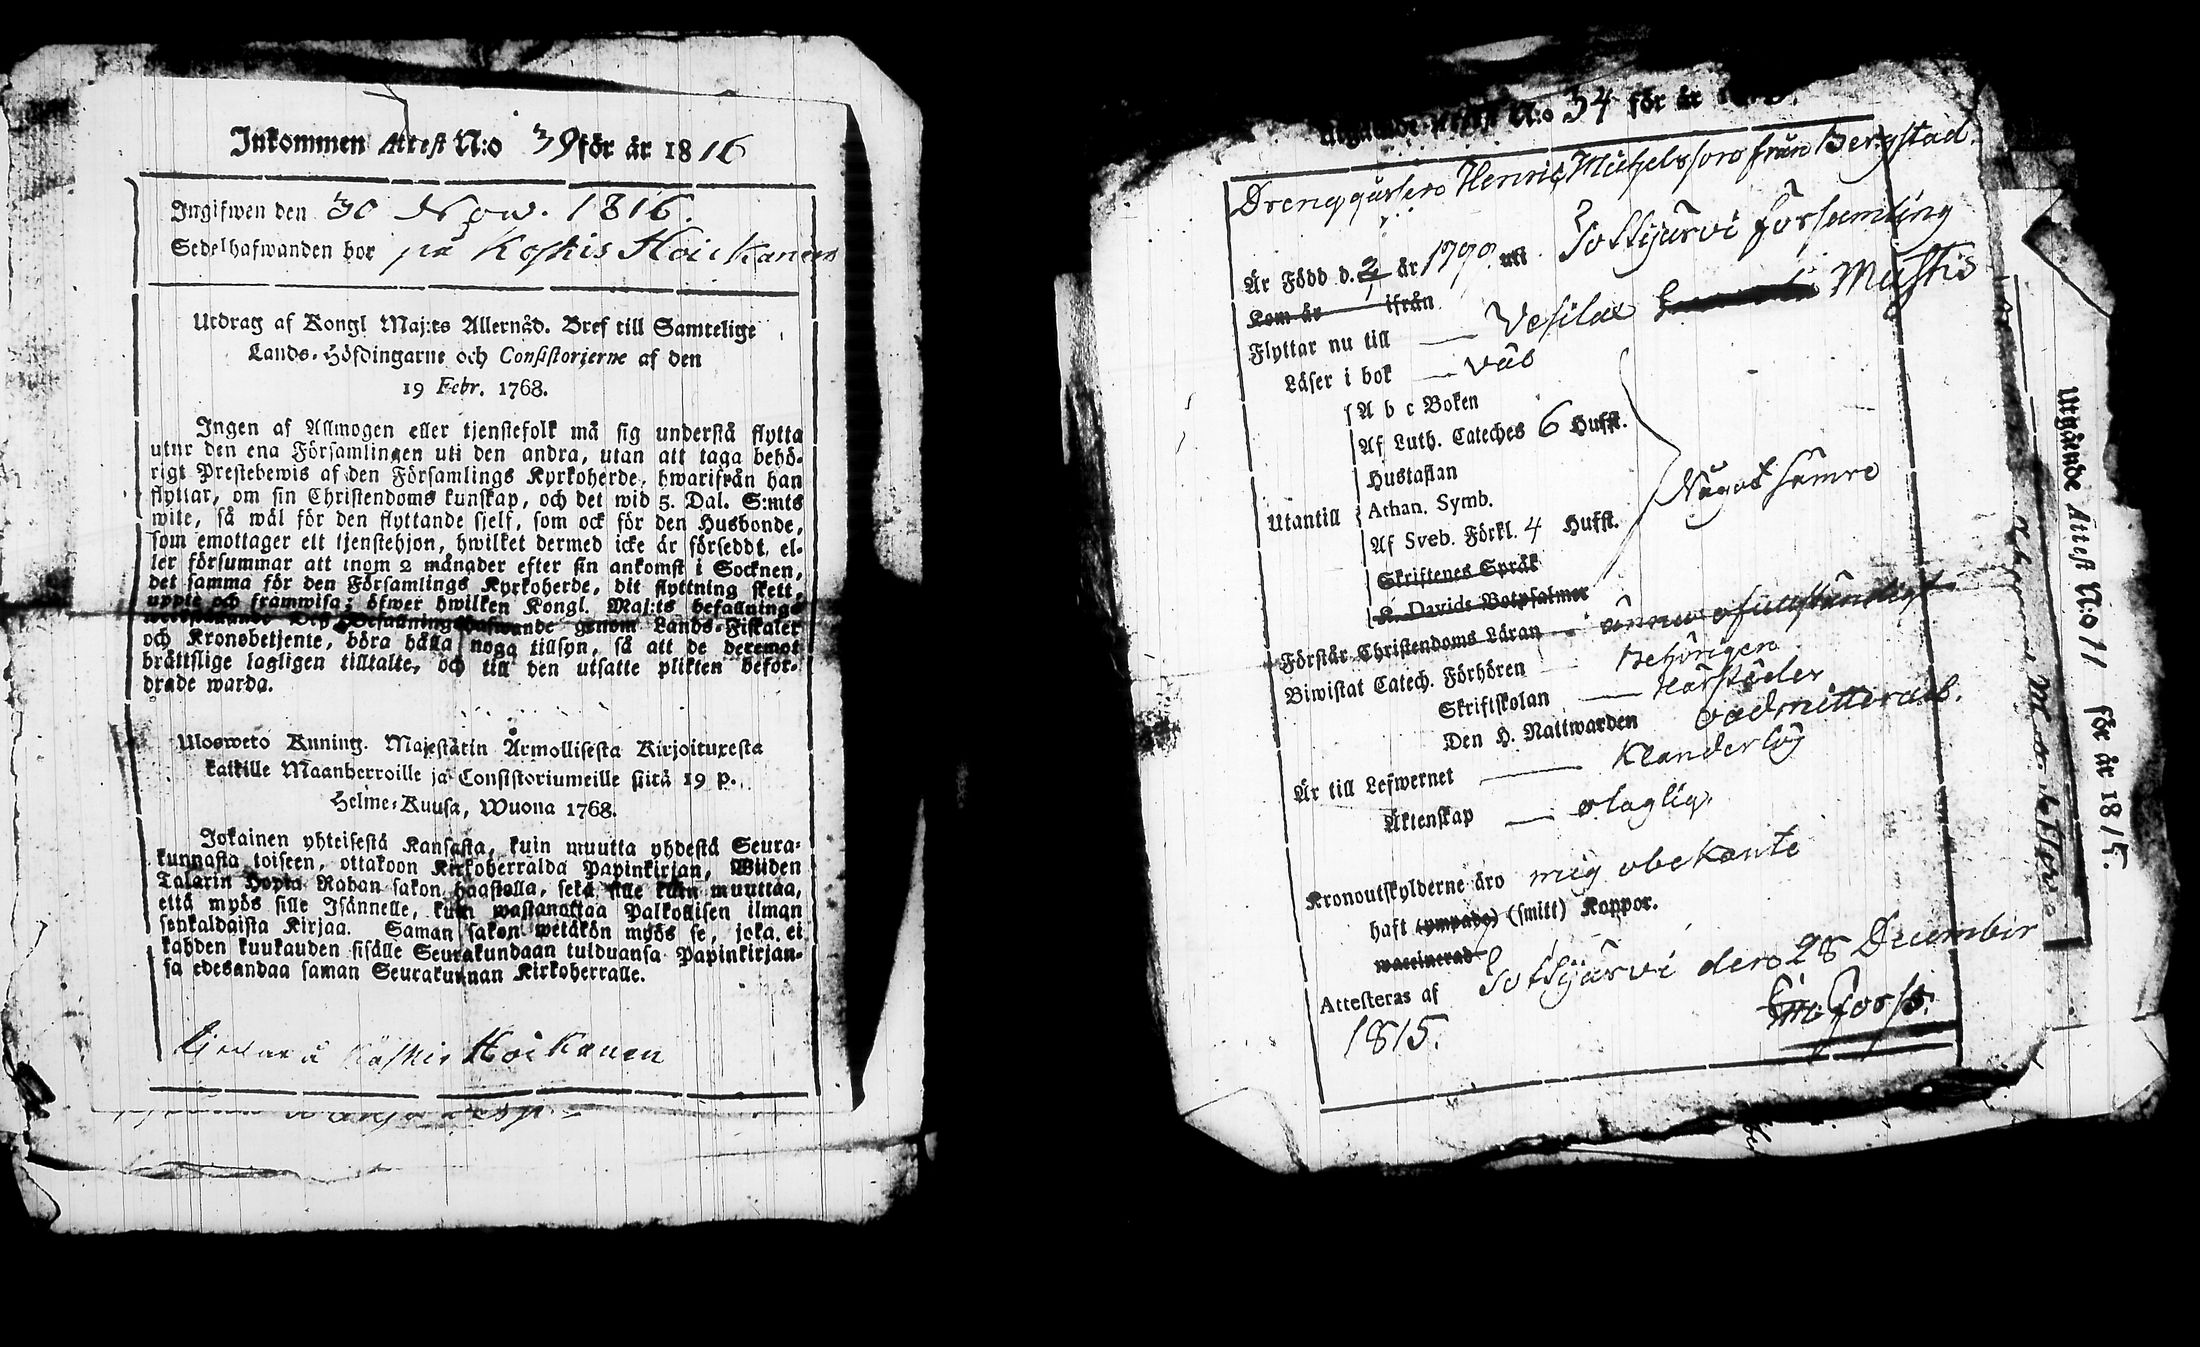 Inkommen Attest N:o 39 för år 1816
Ingifwen den 30 Now. 1816.
Sedelhafwanden bor på Koskis Hoickanen
Utdrag af Kongl Maj:ts Allernåd. Bref till Samtelige
Lands-Höfdingarne och Consistorierne af den
19 Febr. 1768.
Ingen af Allmogen eller tjenstefolk må sig understå flytta
utur den ena Församlingen uti den andra, utan att taga behö-
rigt Prestebewis af den Församlings Kyrkoherde, hwarifrån han
flyttar, om sin Christendoms kunskap, och det wid 5. Dal. S:mts
wite, så wäl för den flyttande sjelf, som ock för den Husbonde,
som emottager ett tjenstehjon, hwilket dermed icke är försedt, el-
ler försummar att inom 2 månader efter sin ankomst i Socknen,
det samma för den Församlings Kyrkoherde, dit flyttning skett,
uppte och framwisa; öfwer hwilken Kongl. Maj:ts befallnings
genom Lands-Fiskaler
och Kronobetjente, böra hålla noga tillsyn, så att de deremot
bråttslige lagligen tilltalte, och till den utsatte plikten befor-
drade warda.
Ulosweto Kuning. Majestätin Armollisesta Kirjoituxesta
kaikille Maanherroille ja Consistoriumeille siitä 19 p.
Helme-Kuusa, Wuona 1768.
Jokainen yhteisestä Kansasta, kuin muutta yhdestä Seura-
kunnasta toiseen, ottakoon Kirkoherralda Papinkirjan, Wiiden
Talarin Hopia Rahan sakon haastolla, sekä sille kuin muuttaa,
että myös sille Isännelle, kuin wastanottaa Palkollisen ilman
senkaldaista Kirjaa. Saman sakon wetäkön myös se, joka ei
kahden kuukauden sisälle Seurakundaan tulduansa Papinkirjan-
sa edesandaa saman Seurakunnan Kirkoherralle.
å Koskis Hoikanen
N:o 34 för år
Drenggåssen Henric Michelsson från Bergstad.
Är Född d. 2 år 1790 uti Tottijärvi församling
Kom år ifrån
Flyttar nu till Vesilax Mustis
Läser i bok väl
A b c Boken
Af Luth. Cateches 6 Hufst.
Hustaflan
Utantill Athan. Symb. Något sämre
Af Sveb. Förkl. 4 Hufst.
Skriftenes Språk
K. Davids Botpsalmer
Förstår Christendoms Läran ännu ofullständigt
Biwistat Catech. Förhören Behörigen
Skriftskolan
Den H. Nattwarden admitterad.
Är till Lefwernet Klanderlös
Äktenskap olaglig.
Kronoutskylderne äro mig obekante
haft (ympade) (smitt) Koppor.
waccinerad
Attesteras af Tottijärvi den 28 December
1815.
Utgående Attest N:o 11 för år 1815.